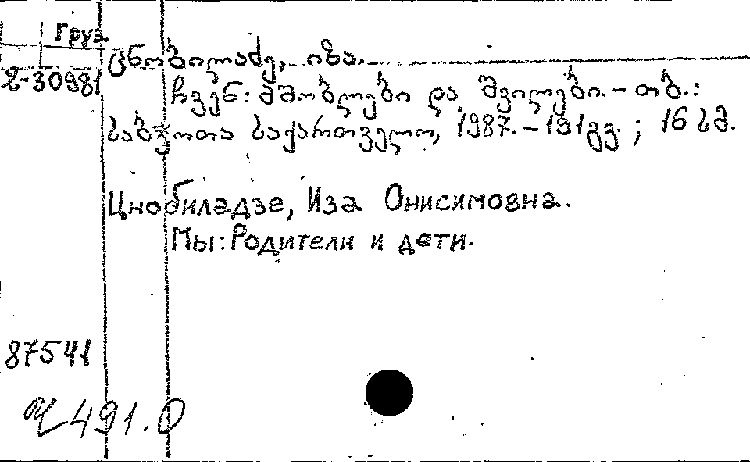 Груз.
ცნობილაძე, იზა.
2-30981
ჩვენ: მშობლები და შვილები. - თბ.:
საბჭოთა საქართველო, 1987. - 191გვ. ; 16 სმ.
Цнобиладзе, Иза Онисимовна.
Мы: Родители и дети.
87541
491.0